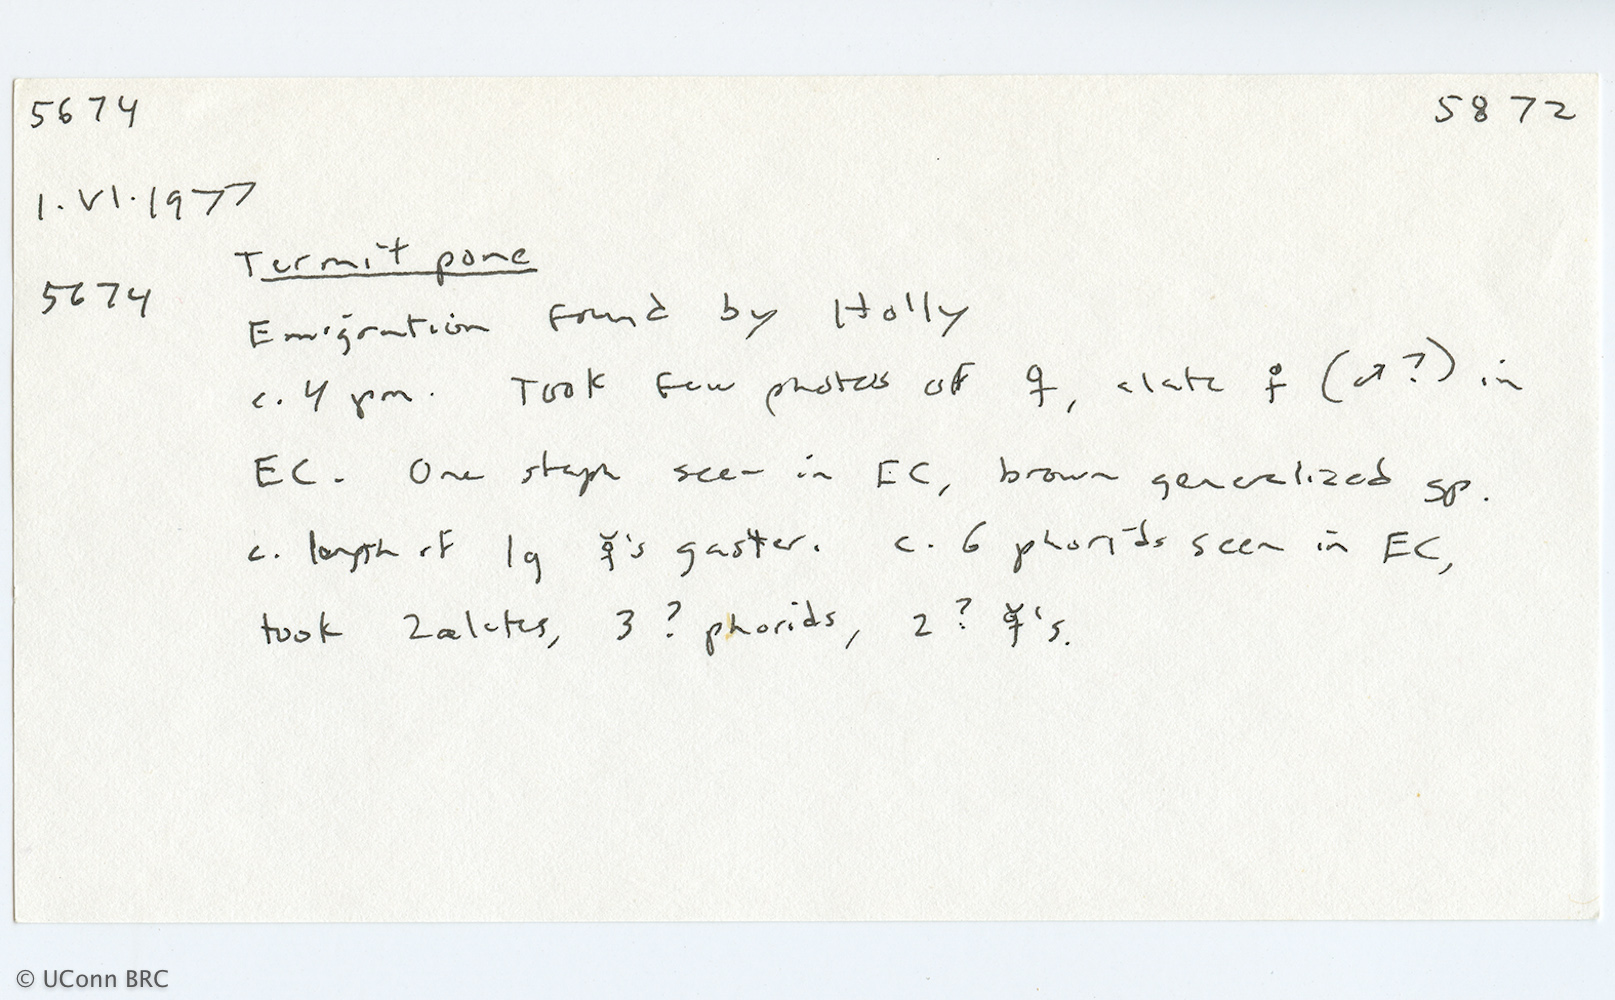 5674 5872
1.VI.1977
Termit pone
5674
Emigration found by Holly
c. 4 pm. Took few photos of ☿, alate ♀ (♂?) in
EC. One staph seen in EC, brown generalized sp.
c. length of lg ☿'s gaster. c. 6 phorids seen in EC,
took 2 alates, 3 ? phorids, 2 ? ☿'s.
© UConn BRC